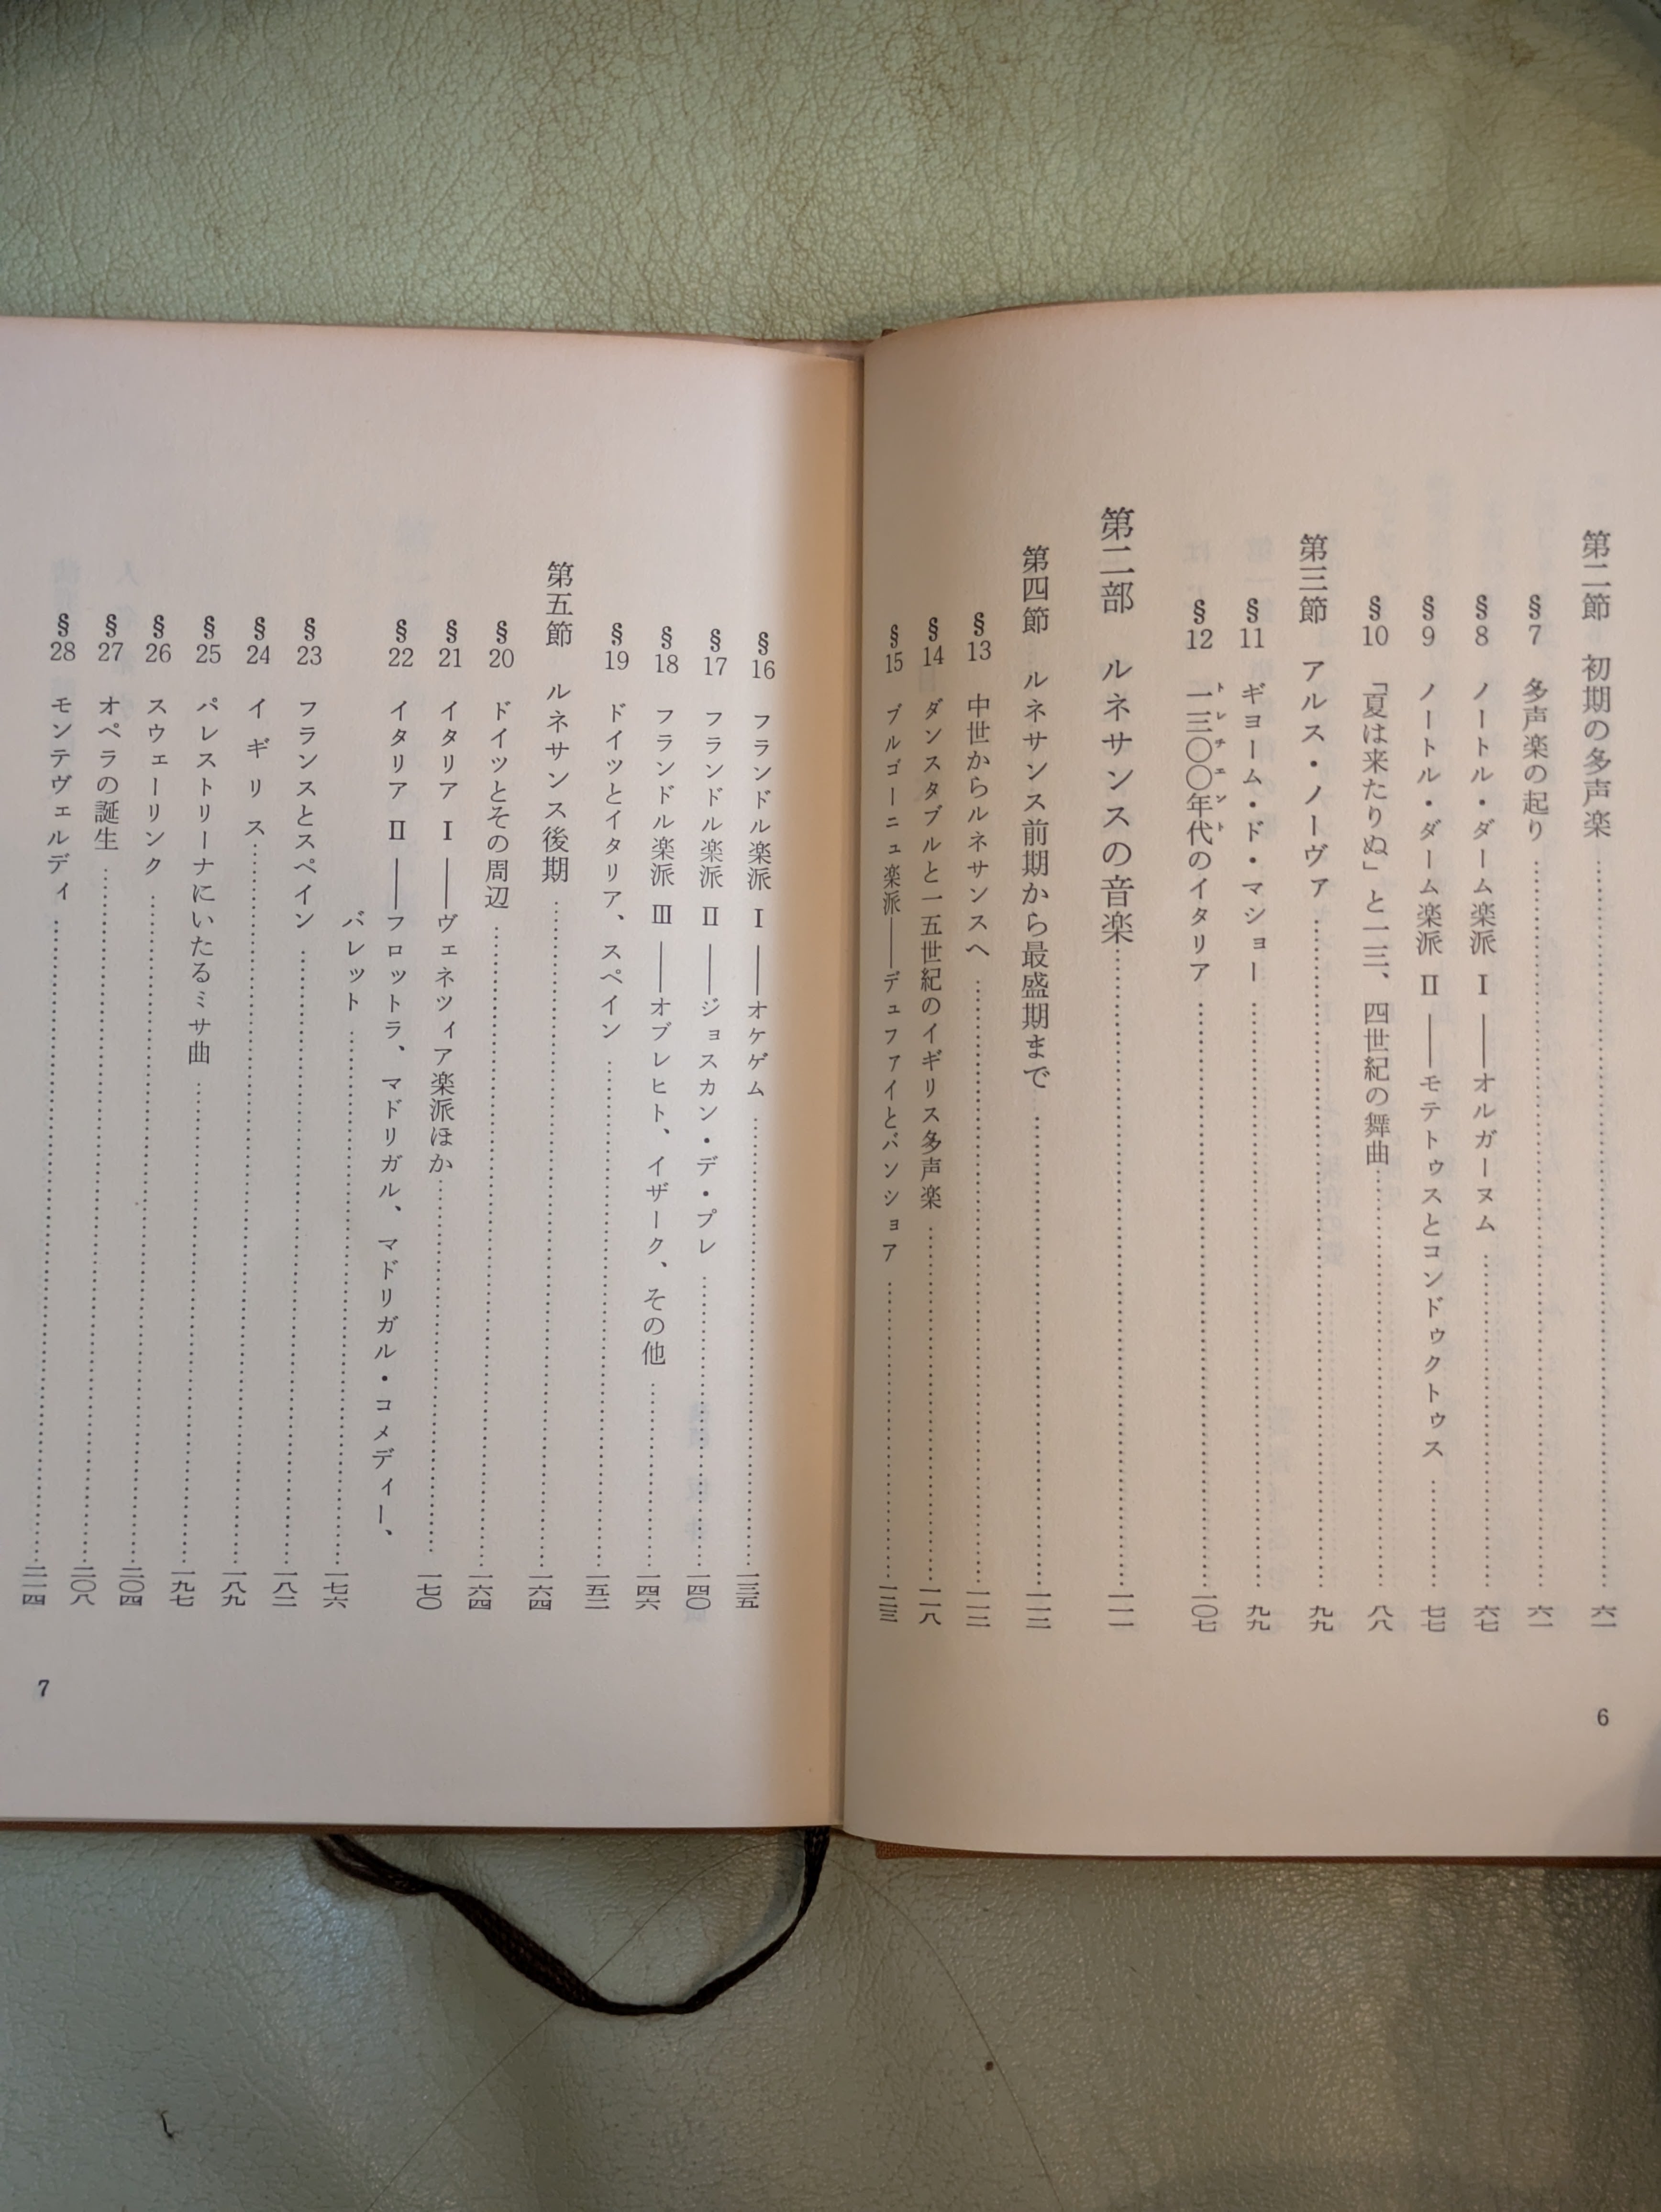 第二節　初期の多声楽……六一
§7　多声楽の起り……六一
§8　ノートル・ダーム楽派　Ⅰ――オルガーヌム……六七
§9　ノートル・ダーム楽派　Ⅱ――モテトゥスとコンドゥクトゥス……七七
§10　「夏は来たりぬ」と一三、四世紀の舞曲……八八
第三節　アルス・ノーヴァ……九九
§11　ギヨーム・ド・マショー……九九
トレチェント
§12　一三〇〇年代のイタリア……一〇七
第二部　ルネサンスの音楽……一一一
第四節　ルネサンス前期から最盛期まで……一一二
§13　中世からルネサンスへ……一一二
§14　ダンスタブルと一五世紀のイギリス多声楽……一一八
§15　ブルゴーニュ楽派――デュファイとバンショア……一二三
6
§16　フランドル楽派　Ⅰ――オケゲム……一三五
§17　フランドル楽派　Ⅱ――ジョスカン・デ・プレ……一四〇
§18　フランドル楽派　Ⅲ――オブレヒト、イザーク、その他……一四六
§19　ドイツとイタリア、スペイン……一五二
第五節　ルネサンス後期……一六四
§20　ドイツとその周辺……一六四
§21　イタリア　Ⅰ――ヴェネツィア楽派ほか……一七〇
§22　イタリア　Ⅱ――フロットラ、マドリガル、マドリガル・コメディー、
バレット……一七六
§23　フランスとスペイン……一八二
§24　イギリス……一八九
§25　パレストリーナにいたるミサ曲……一九七
§26　スウェーリンク……二〇四
§27　オペラの誕生……二〇八
§28　モンテヴェルディ……二一四
7